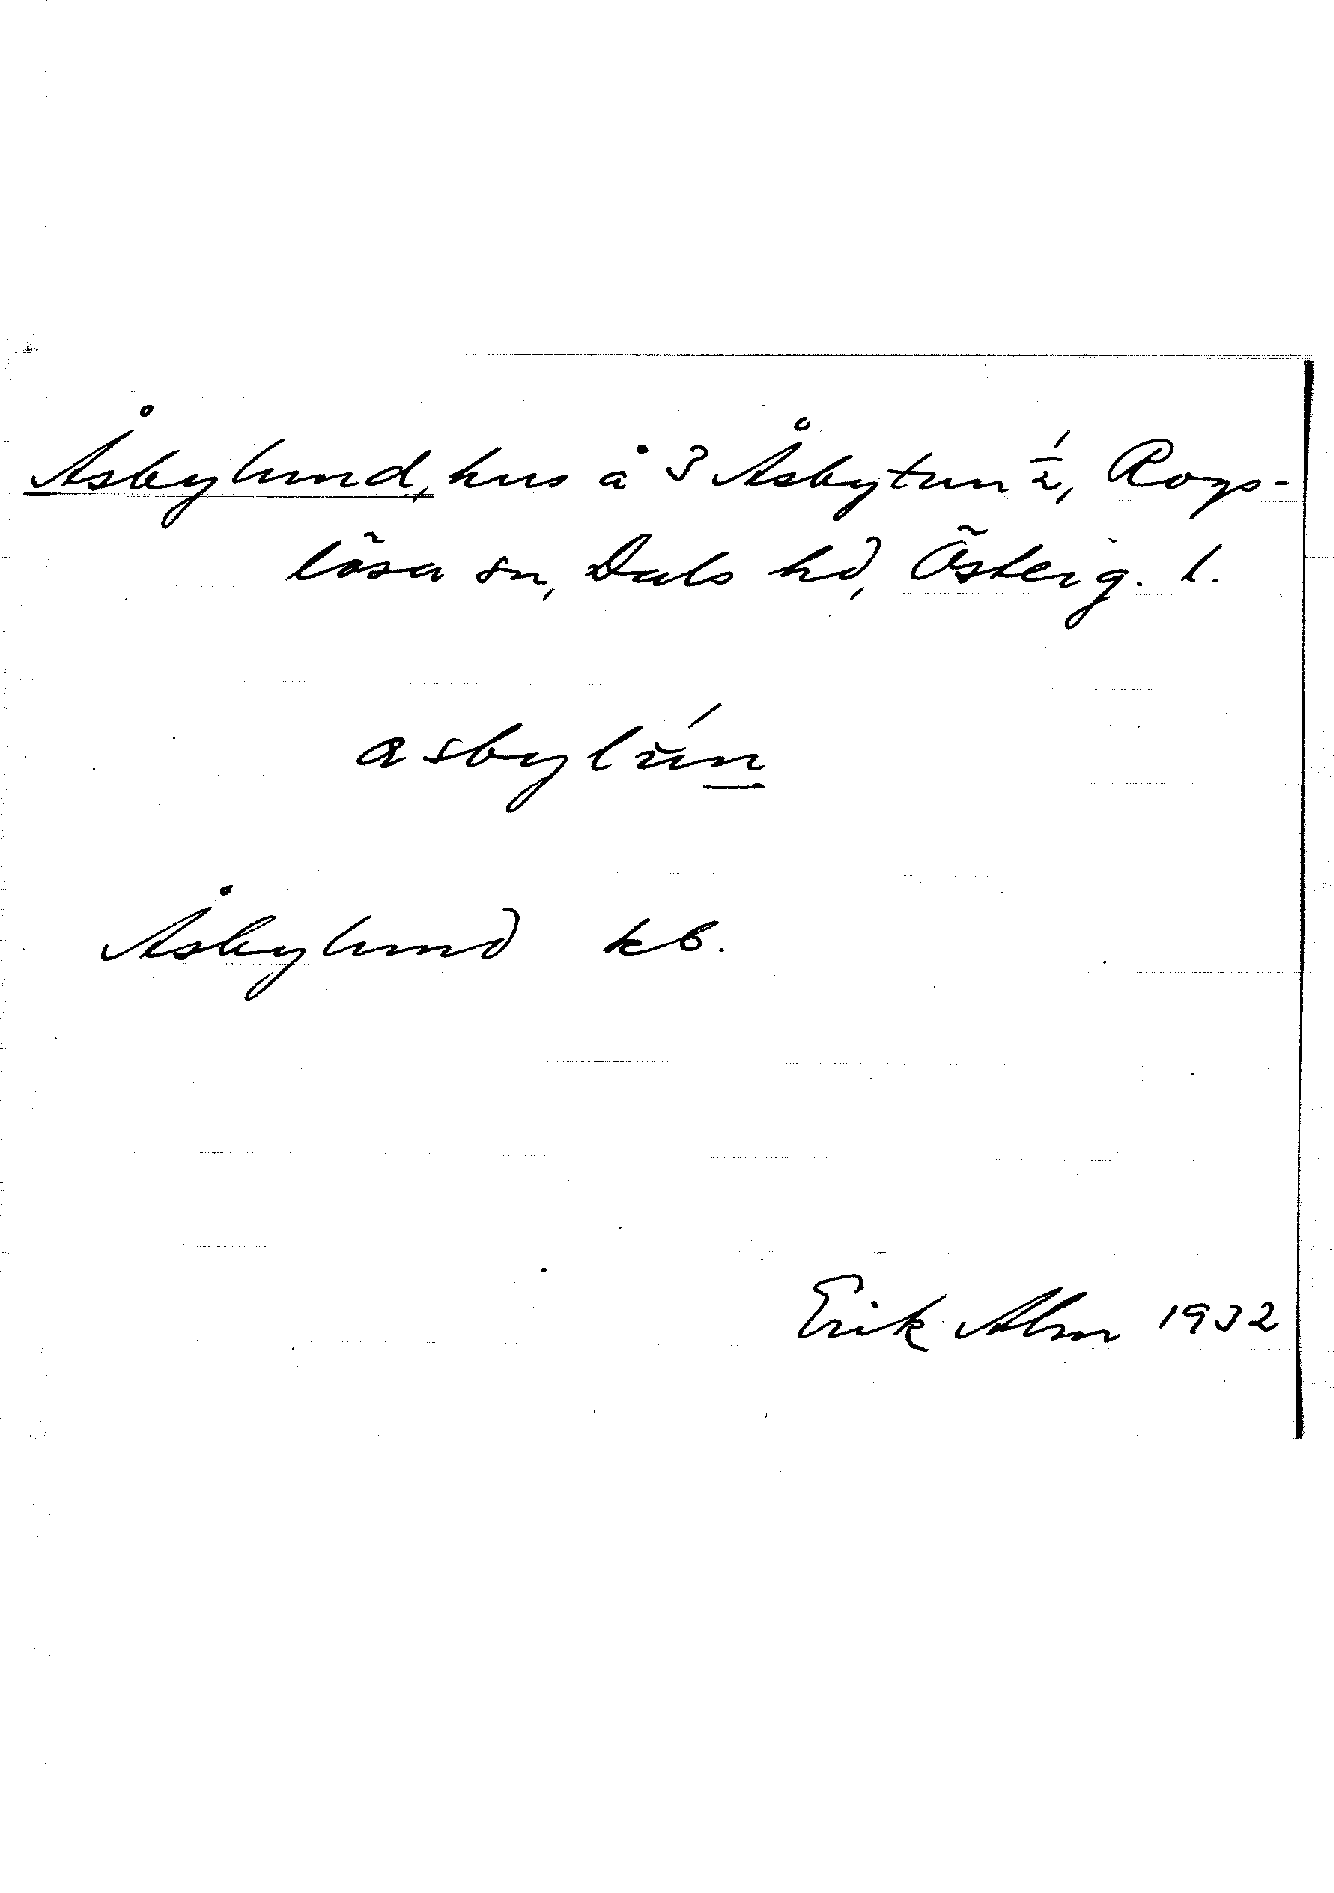 Åsbylund, hus å 3 Åsbytun 1/2, Rogs-
lösa sn, Dals hd, Österg. l.
asbylún
Åsbylund kb.
Erik Alm 1932